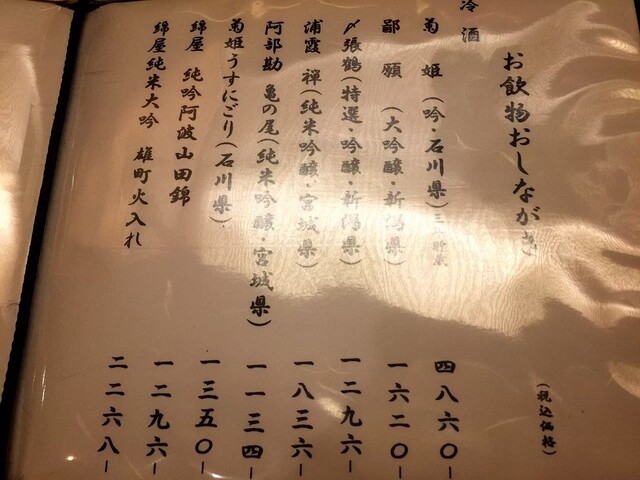 お飲物おしながき
(税込価格)
冷酒
菊姫 (吟・石川県) 三年貯蔵 四八六〇ー
鄙願 (大吟醸・新潟県) 一六二〇ー
〆張鶴(特選・吟醸・新潟県) 一二九六ー
浦霞 禅(純米吟醸・宮城県) 一八三六ー
阿部勘 亀の尾(純米吟醸・宮城県) 一一三四ー
菊姫うすにごり(石川県) 一三五〇ー
綿屋 純吟阿波山田錦 一二九六ー
綿屋純米大吟 雄町火入れ 二二六八ー